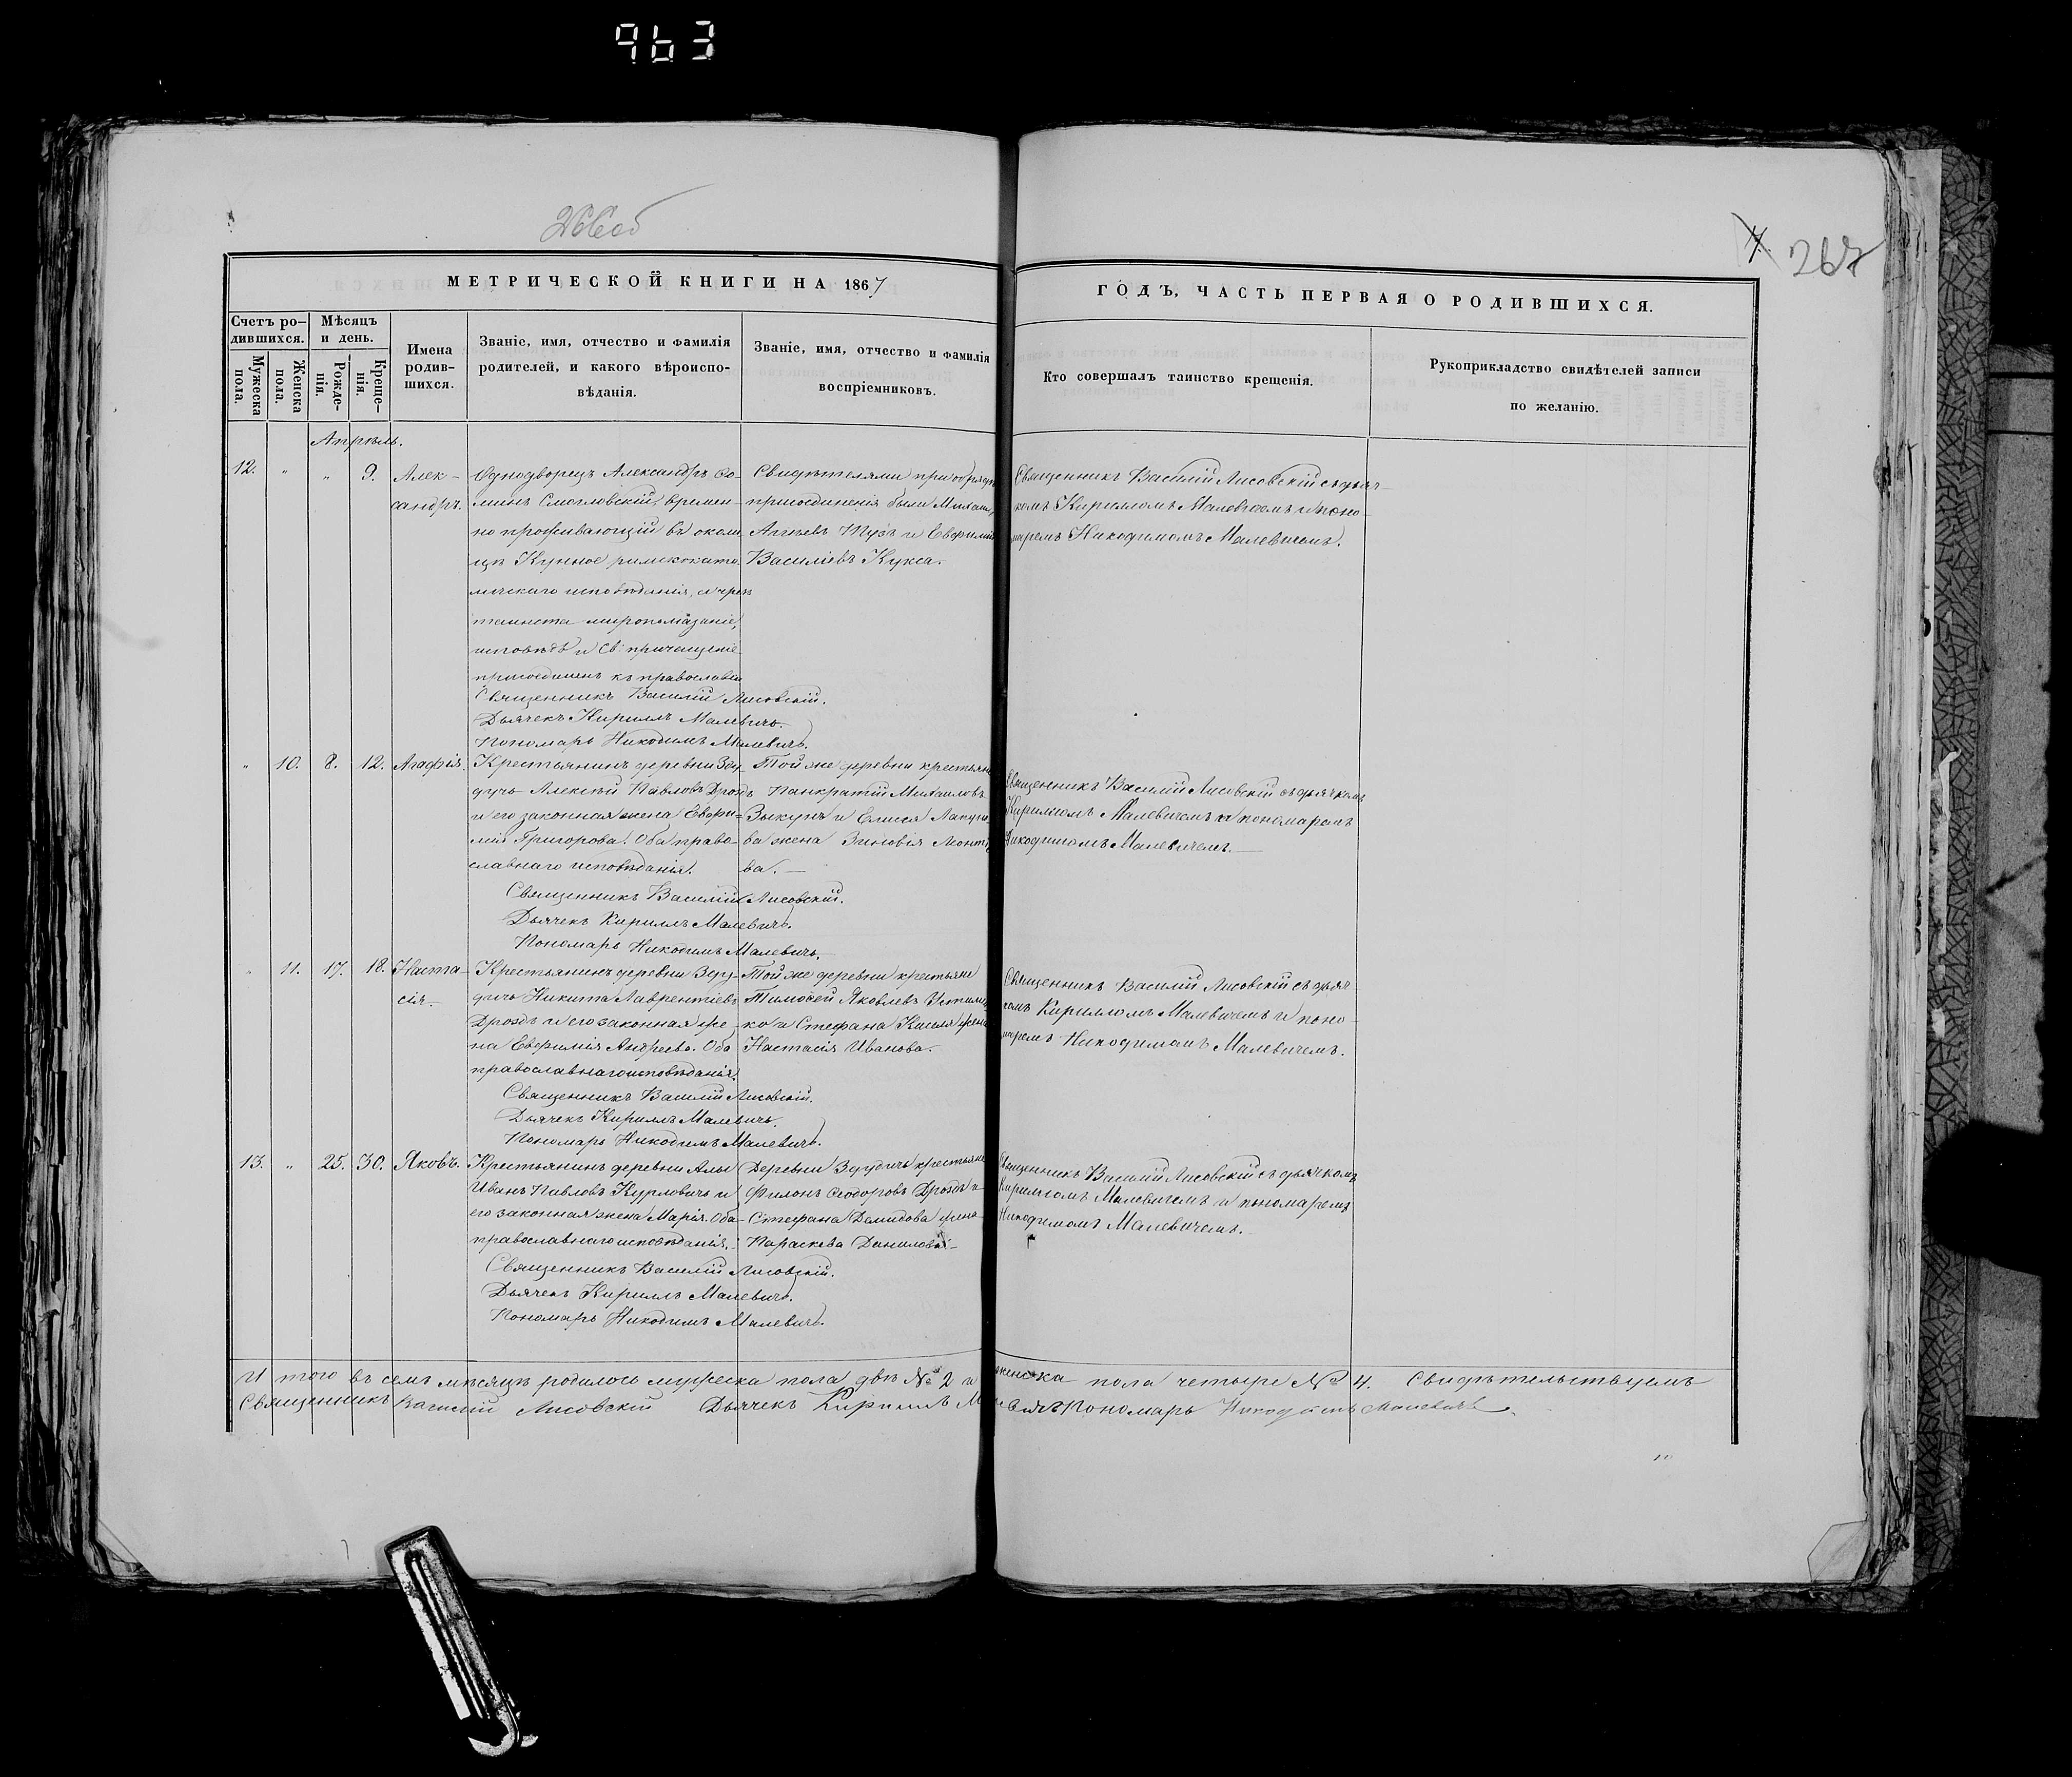 963
266об
7. 267
МЕТРИЧЕСКОЙ КНИГИ НА 1867
ГОДЪ, ЧАСТЬ ПЕРВАЯ О РОДИВШИХСЯ.
Счетъ ро-
дившихся.
Мужеска пола.
Женска пола.
Мѣсяцъ
и день.
Рожде-
нія.
Креще-
нія.
Имена
родив-
шихся.
Званіе, имя, отчество и фамилія
родителей, и какого вѣроиспо-
вѣданія.
Званіе, имя, отчество и фамилія
воспріемниковъ.
Кто совершалъ таинство крещенія.
Рукоприкладство свидѣтелей записи
по желанію.
Апрѣль.
12. " " 9. Алек-
сандръ.
Однодворецъ Александръ Ѳо-
минъ времен-
но проживающій въ околи-
цѣ римскокато-
лическаго исповѣданія, а чрез
таинста миропомазаніе,
исповѣдь и Св: причащеніе
присоединенъ къ православію
Священникъ Василій Лисовскій.
Дьячекъ Кириллъ Малевичъ.
Пономарь Никодимъ Малевичъ.
Свидѣтелями при обрядѣ
присоединенія были Михаилъ
и Евфимій
Василіевъ Кукса.
Священникъ Василій Лисовскій съ дьяч-
комъ Кирилломъ Малевичемъ и поно-
маремъ Никодимомъ Малевичемъ.
" 10. 8. 12. Агафія.
Крестьянинъ деревни Зду-
дичь Алексѣй Павловъ Дроздъ
и его законная жена Евфи-
мія Григорова. Оба право-
славнаго исповѣданія.
Священникъ Василій Лисовскій.
Дьячекъ Кириллъ Малевичъ.
Пономарь Никодимъ Малевичъ.
Той же деревни крестьяне
Панкратій Михаиловъ
Зыкунъ и Елисея
ва жена Зиновія
ва.
Священникъ Василій Лисовскій съ дьячкомъ
Кирилломъ Малевичемъ и пономаремъ
Никодимомъ Малевичемъ.
" 11. 17. 18. Наста-
сія.
Крестьянинъ деревни Зду-
дичь Никита Лаврентіевъ
Дроздъ и его законная же-
на Евфимія Андреева. Оба
православнаго исповѣданія.
Священникъ Василій Лисовскій.
Дьячекъ Кириллъ Малевичъ.
Пономарь Никодимъ Малевичъ.
Той же деревни крестьяне
Тимоѳей Яковлевъ
ко и Стефана Киселя жена
Настасія Иванова.
Священникъ Василій Лисовскій съ дьяч-
комъ Кирилломъ Малевичемъ и поно-
маремъ Никодимомъ Малевичемъ.
13. " 25. 30. Яковъ.
Крестьянинъ деревни Алы
Иванъ Павловъ Курловичъ и
его законная жена Марія. Оба
православнаго исповѣданія.
Священникъ Василій Лисовскій.
Дьячекъ Кириллъ Малевичъ.
Пономарь Никодимъ Малевичъ.
Деревни Здудичь крестьяне
Филонъ Ѳеодоровъ Дроздъ и
Стефана Демидова жена
Параскева Данилова
Священникъ Василій Лисовскій съ дьячкомъ
Кирилломъ Малевичемъ и пономаремъ
Никодимомъ Малевичемъ.
И того въ семъ мѣсяцѣ родилось мужеска пола два № 2 и женска пола четыре № 4. Свидѣтельствуемъ
Священникъ Василій Лисовскій Дьячекъ Кириллъ Малевичъ Пономарь Никодимъ Малевичъ.